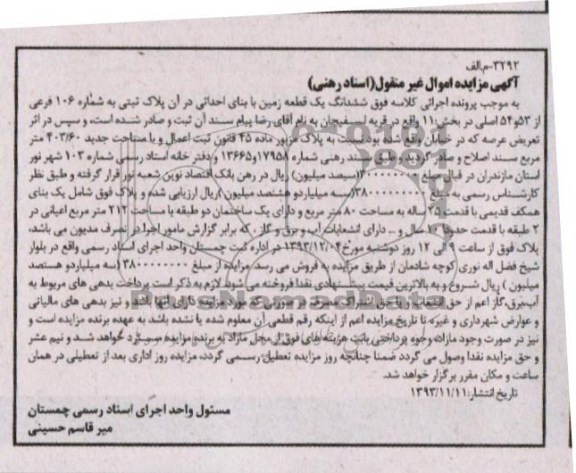 ۳۲۹۲-م.الف
آگهی مزایده اموال غیر منقول(اسناد رهنی)
به موجب پرونده اجرائی کلاسه فوق ششدانگ یک قطعه زمین با بنای احداثی در آن پلاک ثبتی به شماره ۱۰۶ فرعی
از ۵۳و۵۴ اصلی در بخش ۱۱ واقع در قریه به نام آقای رضا پیام سند آن ثبت و صادر شده است، و سپس در اثر
تعریض عرصه که در خیابان واقع شده بود نسبت به پلاک مزبور ماده ۴۵ قانون ثبت اعمال و با مساحت جدید ۴۰۳/۶۰ متر
مربع سند اصلاح و صادر گردید، طبق سند رهنی شماره ۱۷۹۵۸و۱۳۶۶۵ دفتر خانه اسناد رسمی شماره ۱۰۳ شهر نور
استان مازندران در قبال مبلغ (سیصد میلیون) ریال در رهن بانک اقتصاد نوین شعبه نور قرار گرفته و طبق نظر
کارشناس رسمی به مبلغ ۳۸۰۰۰۰۰۰۰۰ (سه میلیاردو هشتصد میلیون )ریال ارزیابی شده و پلاک فوق شامل یک بنای
همکف قدیمی با قدمت ۲۵ ساله به مساحت ۸۰ متر مربع و دارای یک ساختمان دو طبقه با مساحت ۲۱۲ متر مربع اعیانی در
۲ طبقه با قدمت حدودا ۱۰ سال و .. دارای انشعابات آب و برق و گاز ، که برابر گزارش مامور اجرا در تصرف مدیون می باشد،
پلاک فوق از ساعت ۹ الی ۱۲ روز دوشنبه مورخ ۱۳۹۳/۱۲/۰۴ در اداره ثبت چمستان واحد اجرای اسناد رسمی واقع در بلوار
شیخ فضل اله نوری کوچه شادمان از طریق مزایده به فروش می رسد. مزایده از مبلغ ۳۸۰۰۰۰۰۰۰۰ (سه میلیاردو هستصد
میلیون ) ریال شروع و به بالاترین قیمت پیشنهادی نقدا فروخته می شود. لازم به ذکر است پرداخت بدهی های مربوط به
آب،برق،گاز اعم از حق انشعاب و یا حق اشتراک و مصرف در صورتی که مورد مزایده دارای آنها باشد و نیز بدهی های مالیاتی
و عوارض شهرداری و غیره تا تاریخ مزایده اعم از اینکه رقم قطعی آن معلوم شده یا نشده باشد به عهده برنده مزایده است و
نیز در صورت وجود مازاد، وجوه پرداختی بابت هزینه های فوق از محل مازاد به برنده مزایده مسترد خواهد شد و نیم عشر
و حق مزایده نقدا وصول می گردد ضمنا چنانچه روز مزایده تعطیل رسمی گردد، مزایده روز اداری بعد از تعطیلی در همان
ساعت و مکان مقرر برگزار خواهد شد.
تاریخ انتشار:۱۳۹۳/۱۱/۱۱
مسئول واحد اجرای اسناد رسمی چمستان
میر قاسم حسینی